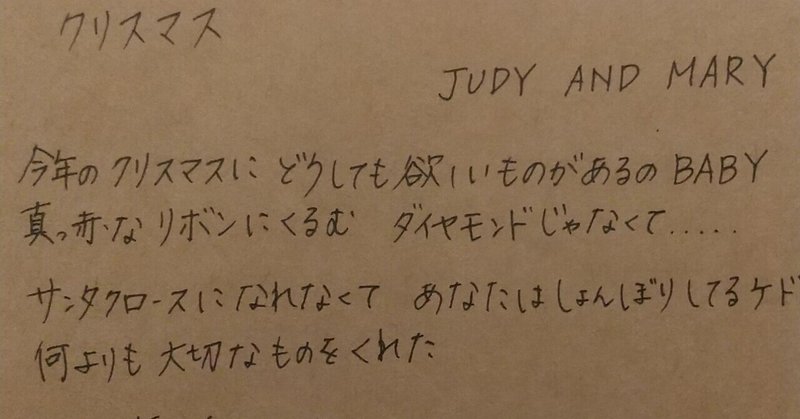 クリスマス
JUDY AND MARY
今年のクリスマスに どうしても欲しいものがあるの BABY
真っ赤な リボンにくるむ ダイヤモンドじゃなくて.....
サンタクロースになれなくて あなたはしょんぼりしてるケド
何よりも 大切なものをくれた